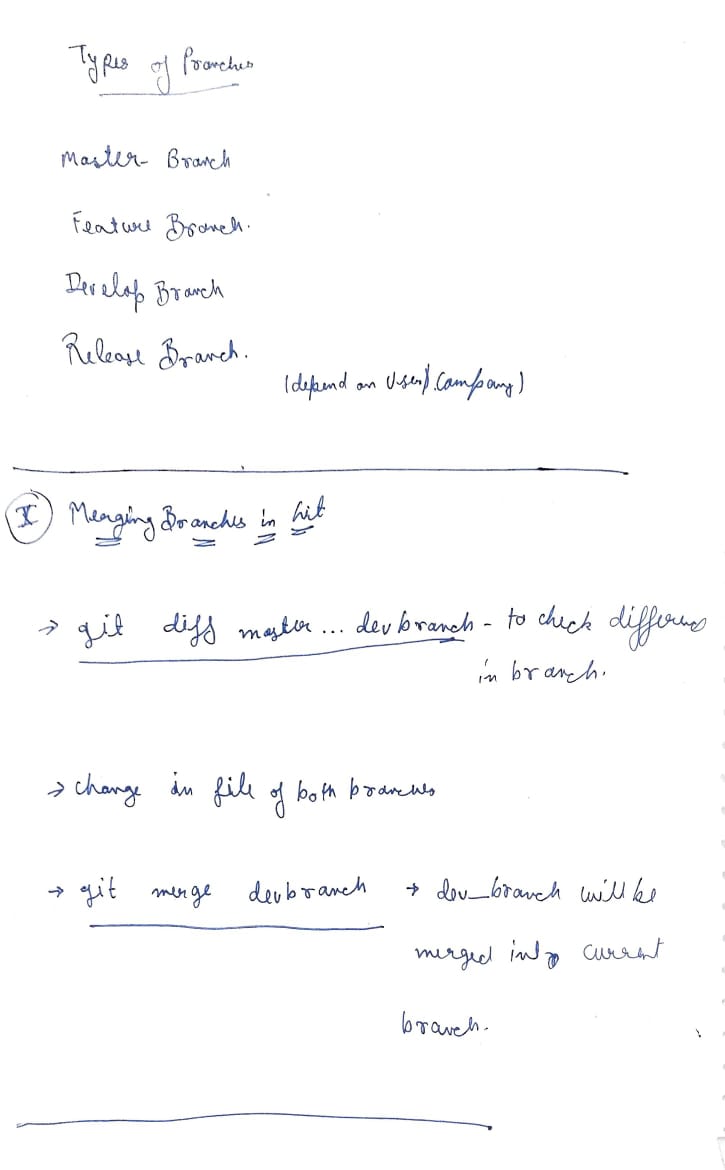 Types of Branches
Master Branch
Feature Branch.
Develop Branch
Release Branch.
(depend on User/Company)
X Merging Branches in Git
→ git diff master... devbranch - to check difference
in branch.
→ change in file of both branches
→ git merge devbranch → dev_branch will be
merged into current
branch.